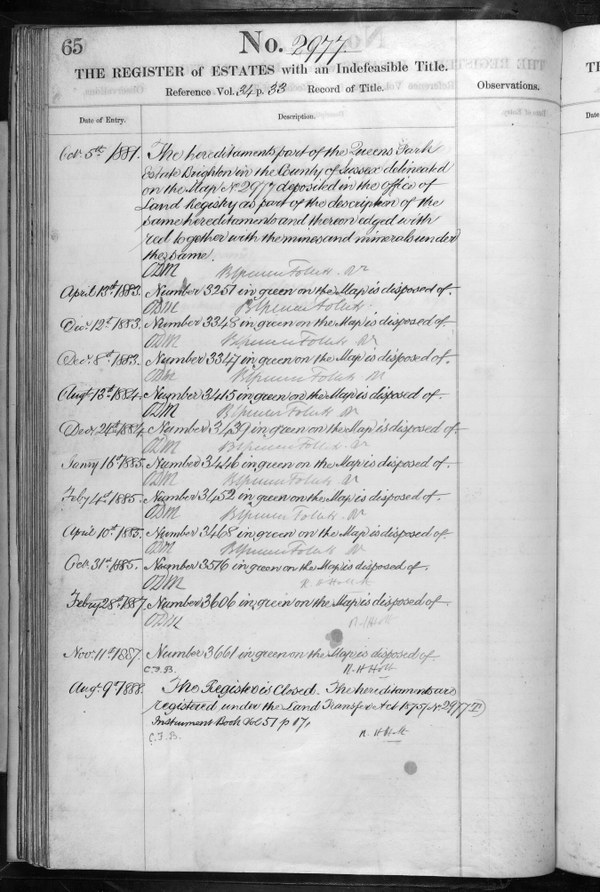 65
No. 2977
THE REGISTER of ESTATES with an Indefeasible Title.
Reference Vol. 34 p. 33 Record of Title.
Observations.
Date of Entry.
Description.
Octr. 5th 1881. The hereditaments part of the Queens Park
Estate Brighton in the County of Sussex delineated
on the Map No 2977 deposited in the Office of
Land Registry as part of the description of the
same hereditaments and thereon edged with
red together with the mines and minerals under
the same.
ODM
April 13th 1883. Number 3251 in green on the Map is disposed of.
ODM
Decr. 12th 1883. Number 3348 in green on the Map is disposed of.
ODM
Decr. 8th 1883. Number 3347 in green on the Map is disposed of.
ODM
Augt. 13th 1884. Number 3415 in green on the Map is disposed of.
ODM
Decr. 24th 1884. Number 3439 in green on the Map is disposed of.
ODM
Janry 16th 1885. Number 3446 in green on the Map is disposed of.
ODM
Feby 4th 1885. Number 3452 in green on the Map is disposed of.
ODM
April 10th 1885. Number 3468 in green on the Map is disposed of.
ODM
Octr. 31st 1885. Number 3576 in green on the Map is disposed of.
ODM R H Holt
Febry 28th 1887. Number 3606 in green on the Map is disposed of.
ODM R H Holt
Novr. 11th 1887. Number 3661 in green on the Map is disposed of.
C.F.B. R H Holt
Augt. 9th 1888. The Register is Closed. The hereditaments are
registered under the Land Transfer Act 1875 / No 2977
Instrument Book Vol 57 p 17,
C.F.B. R H Holt